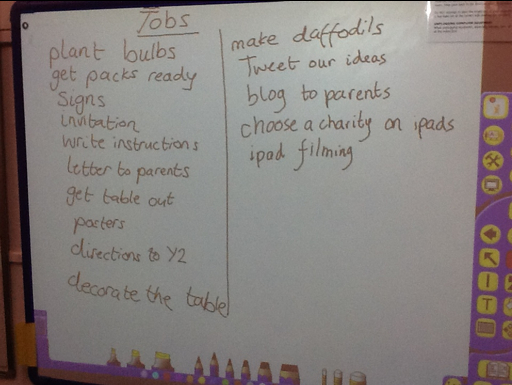 Jobs
plant bulbs
get packs ready
Signs
invitation
write instructions
letter to parents
get table out
posters
directions to Y2
decorate the table
make daffodils
Tweet our ideas
blog to parents
choose a charity on ipads
ipad filming
T